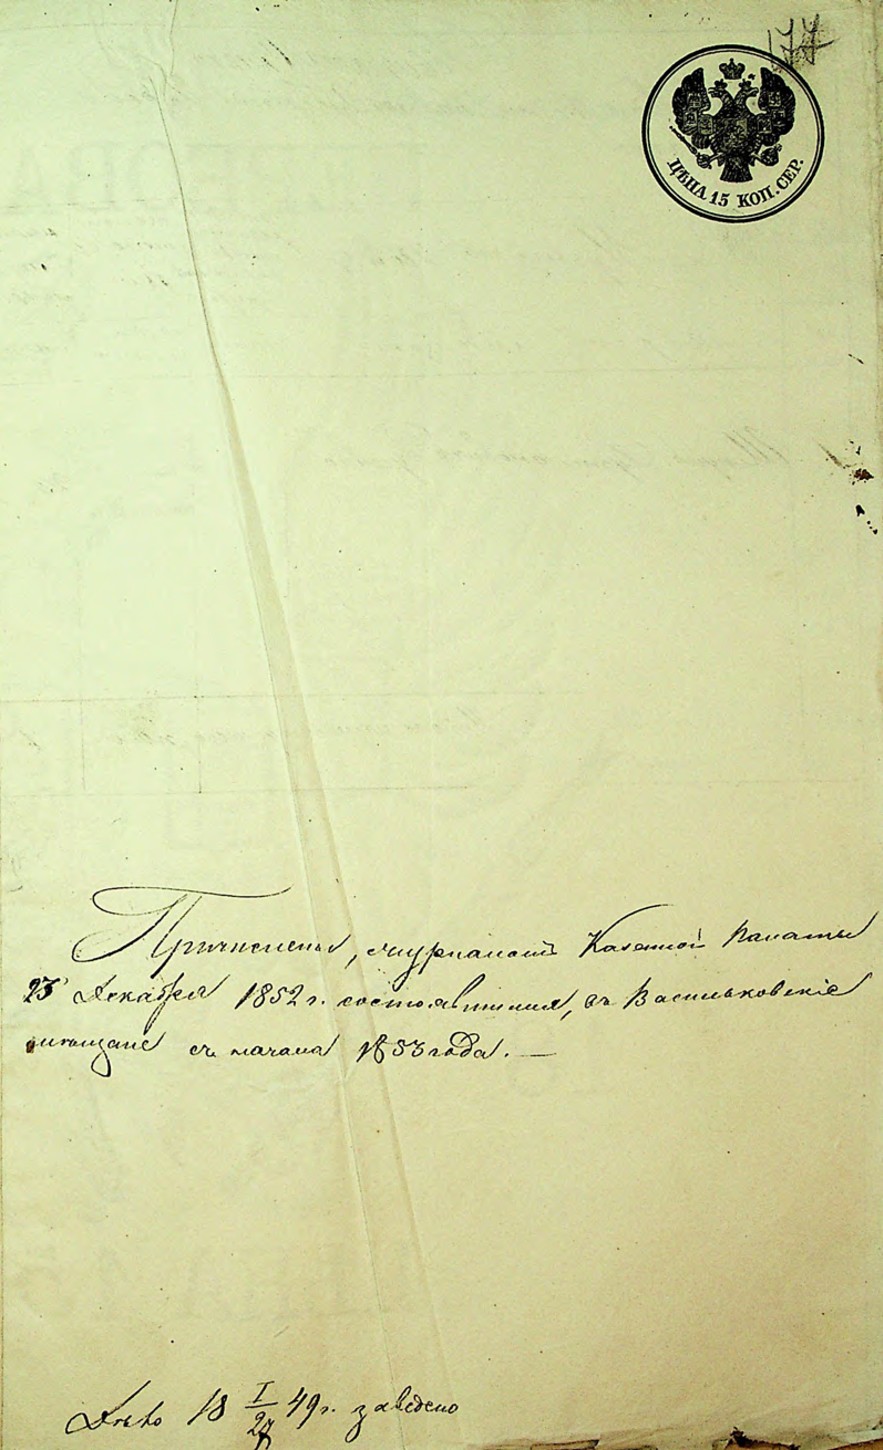 177
ЦѢНА 15 КОП. СЕР.
Причислены, журналомъ Казенной Палаты
23 Декабря 1852 г. состоявшимся, въ Васильковскіе
мѣщане съ начала 1853 года. —
Дѣло 18 I/27 49 г. заведено